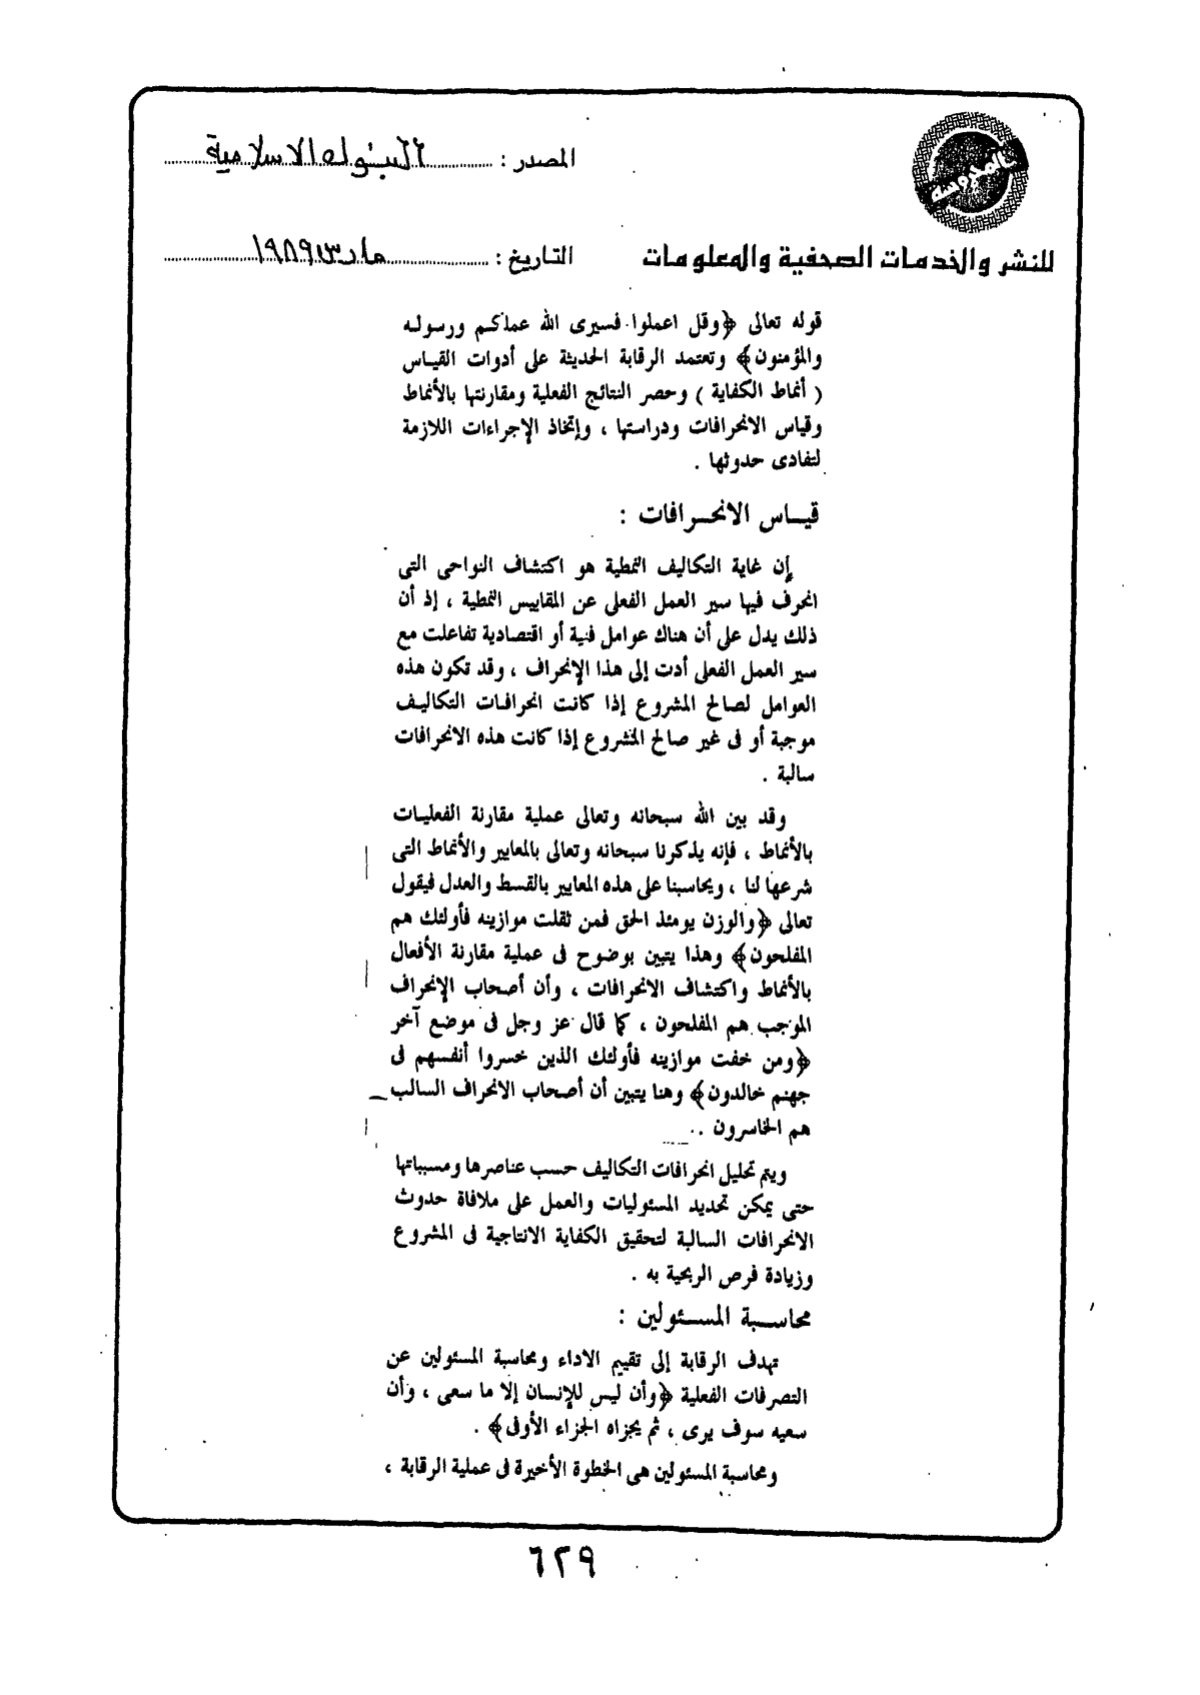 المصدر : البنوك الاسلامية
المحروسة
للنشر والخدمات الصحفية والمعلومات
التاريخ : مارس ١٩٨٩
قوله تعالى ﴿وقل اعملوا فسيرى الله عملكم ورسوله
والمؤمنون﴾ وتعتمد الرقابة الحديثة على أدوات القياس
( أنماط الكفاية ) وحصر النتائج الفعلية ومقارنتها بالأنماط
وقياس الانحرافات ودراستها ، وإتخاذ الإجراءات اللازمة
لتفادى حدوثها .
قيـاس الانحـرافات :
إن غاية التكاليف النمطية هو اكتشاف النواحى التى
انحرف فيها سير العمل الفعلى عن المقاييس النمطية ، إذ أن
ذلك يدل على أن هناك عوامل فنية أو اقتصادية تفاعلت مع
سير العمل الفعلى أدت إلى هذا الإنحراف ، وقد تكون هذه
العوامل لصالح المشروع إذا كانت انحرافات التكاليف
موجبة أو فى غير صالح المشروع إذا كانت هذه الانحرافات
سالبة .
وقد بين الله سبحانه وتعالى عملية مقارنة الفعليات
بالأنماط ، فإنه يذكرنا سبحانه وتعالى بالمعايير والأنماط التى
شرعها لنا ، ويحاسبنا على هذه المعايير بالقسط والعدل فيقول
تعالى ﴿والوزن يومئذ الحق فمن ثقلت موازينه فأولئك هم
المفلحون﴾ وهذا يتبين بوضوح فى عملية مقارنة الأفعال
بالأنماط واكتشاف الانحرافات ، وأن أصحاب الإنحراف
الموجب هم المفلحون ، كما قال عز وجل فى موضع آخر
﴿ومن خفت موازينه فأولئك الذين خسروا أنفسهم فى
جهنم خالدون﴾ وهنا يتبين أن أصحاب الانحراف السالب
هم الخاسرون .
ويتم تحليل انحرافات التكاليف حسب عناصرها ومسبباتها
حتى يمكن تحديد المسئوليات والعمل على ملافاة حدوث
الانحرافات السالبة لتحقيق الكفاية الانتاجية فى المشروع
وزيادة فرص الربحية به .
محاسـبة المسـئولين :
تهدف الرقابة إلى تقييم الاداء ومحاسبة المسئولين عن
التصرفات الفعلية ﴿وأن ليس للإنسان إلا ما سعى ، وأن
سعيه سوف يرى ، ثم يجزاه الجزاء الأوفى﴾ .
ومحاسبة المسئولين هى الخطوة الأخيرة فى عملية الرقابة ،
٦٢٩